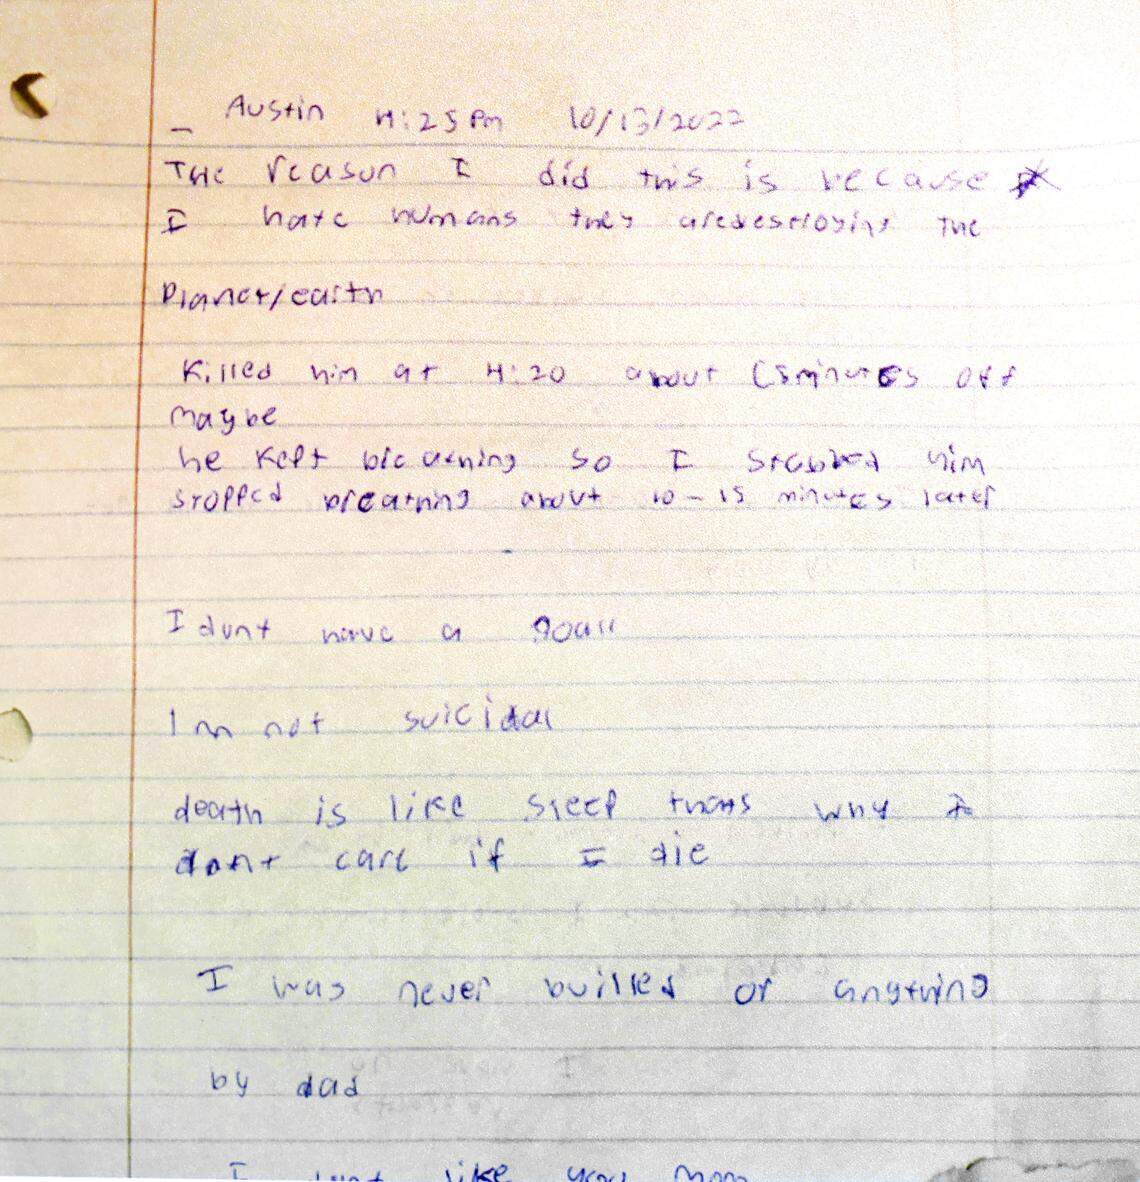 Austin 4:25 Pm 10/13/2022
The reason I did this is because
I hate humans they aredestroying the
Planet/earth
Killed him at 4:20 about (5minutes off
maybe
he kept breathing so I stabbed him
stopped breathing about 10-15 minutes later
I dont have a goall
Im not suicidal
death is like sleep thats why I
dont care if I die
I was never bullied or anything
by dad
I dont like you mom